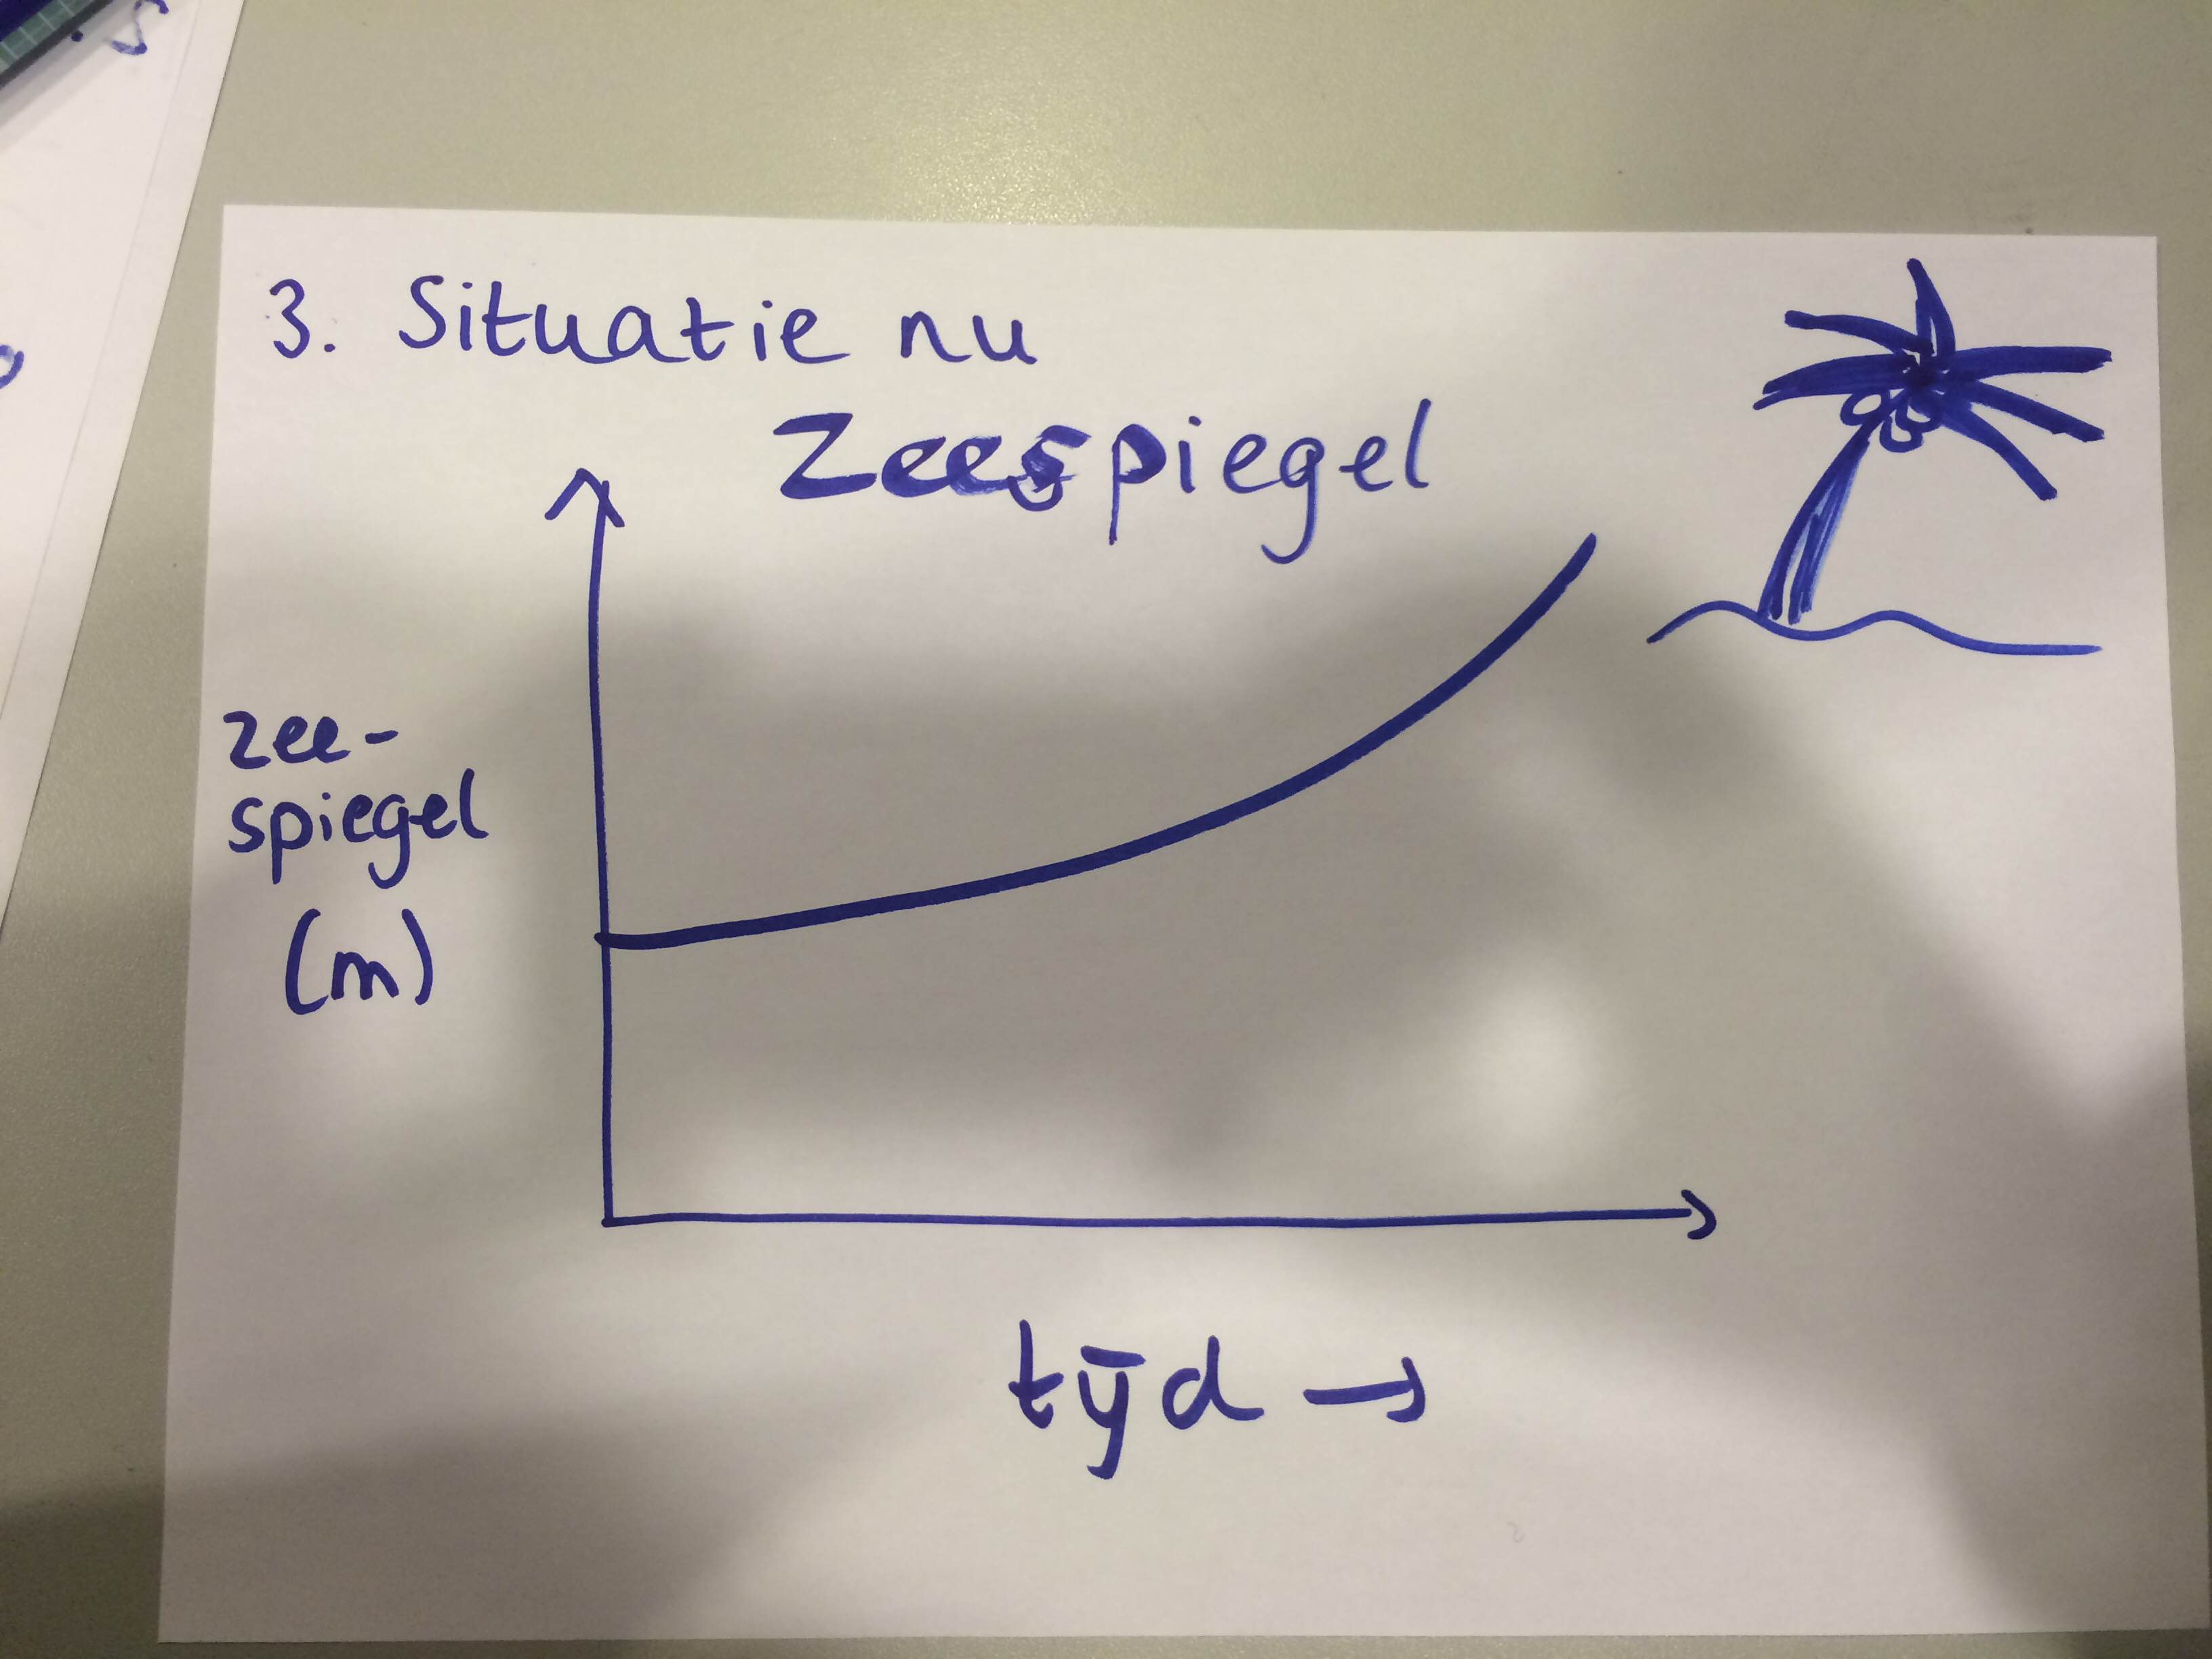 3. Situatie nu
Zeespiegel
zee-
spiegel
(m)
tijd →